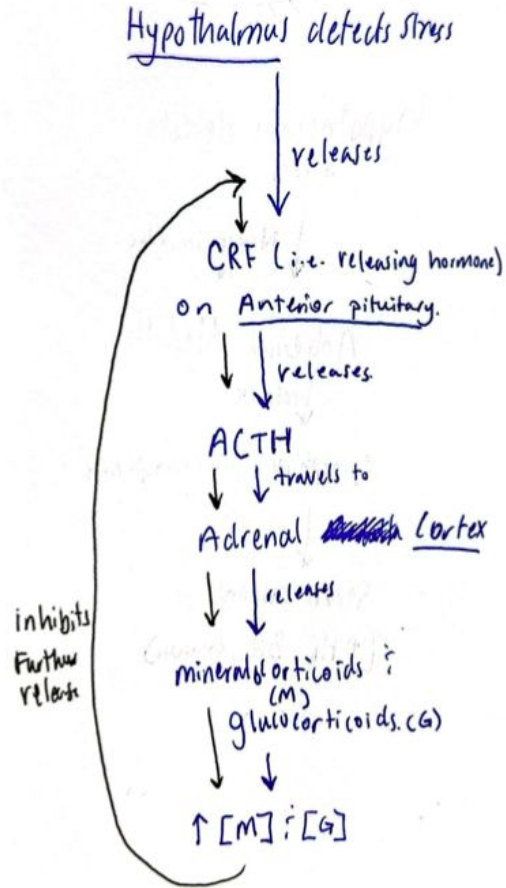 Hypothalmus detects stress
releases
CRF (i.e. releasing hormone)
on Anterior pituitary.
releases.
ACTH
travels to
Adrenal Cortex
releases
mineralocorticoids &
(M)
glucocorticoids. (G)
↑ [M] & [G]
inhibits
Further
release